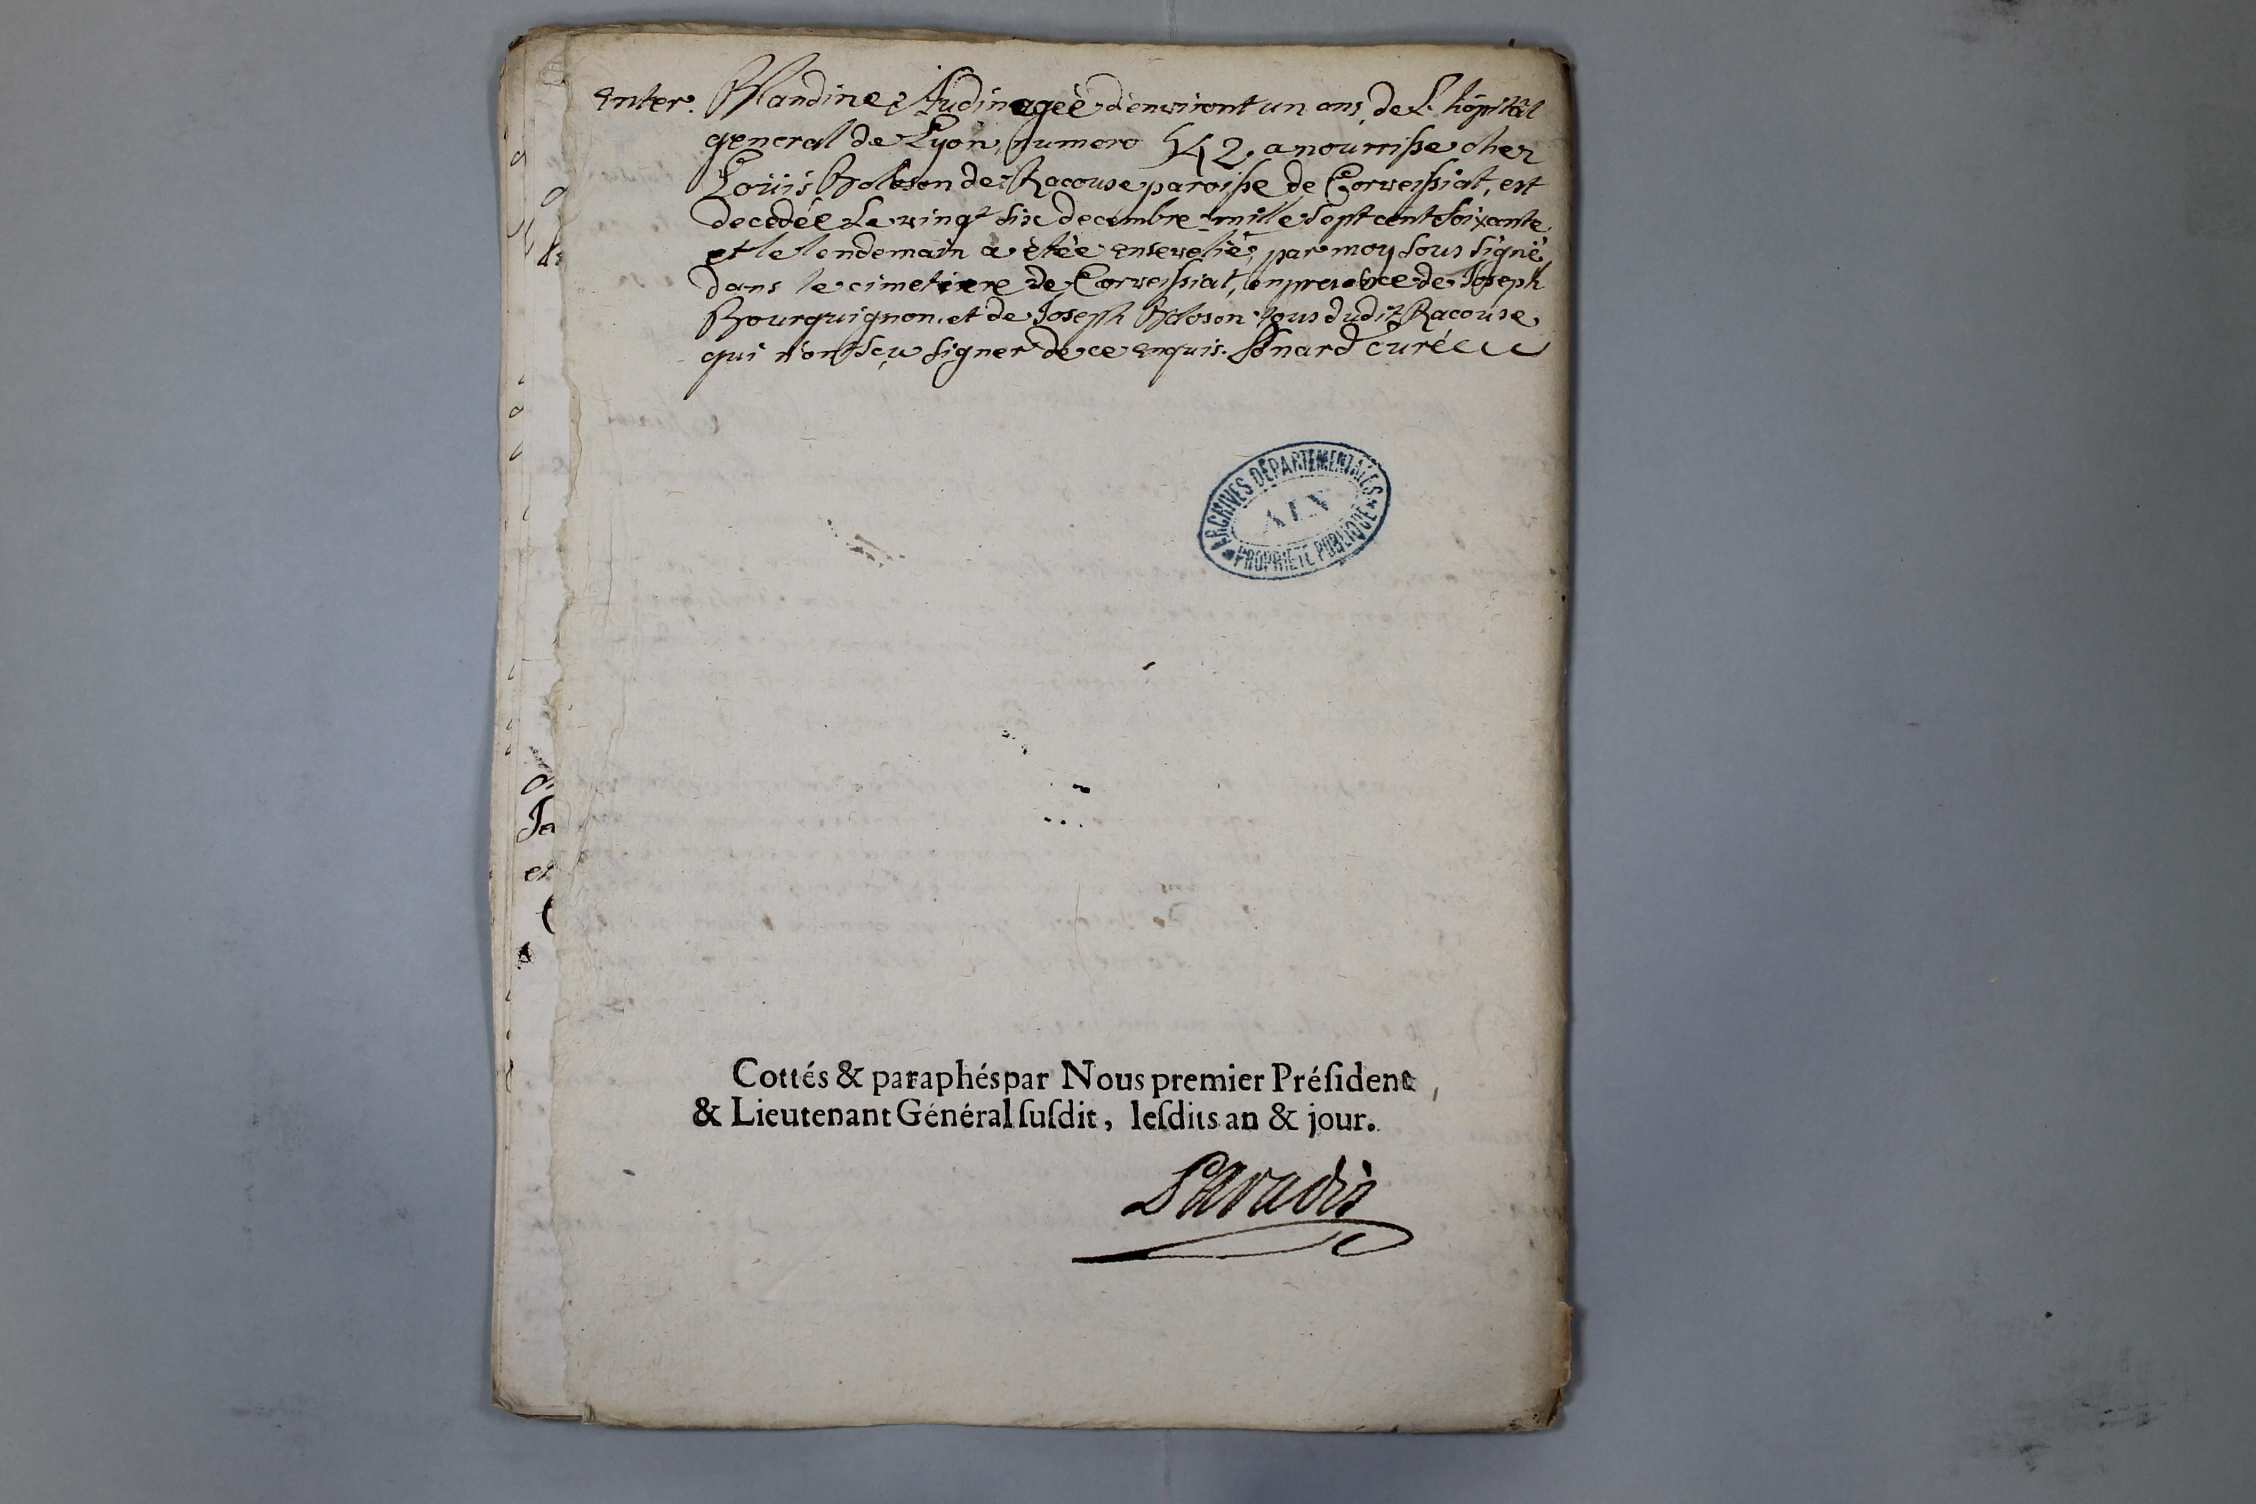 Enter. Blandine Audin agée d'environt un ans, de L'hôpital
general de Lyon, numero 542, a nourrisse chez
Loüis Boloson de Racouse paroisse de Corveissiat, est
decedée Le vingt six decembre mille sept cent soixante
et le lendemain a étée ensevelie, par moy sous signé,
dans le cimetiere de Corveissiat, en presence de Joseph
Bourguignon, et de Joseph Boloson tous dudit Racouse,
qui n'ont sçu signer de ce enquis. curé
ARCHIVES DÉPARTEMENTALES
AIN
PROPRIÉTÉ PUBLIQUE
Cottés & paraphés par Nous premier Préſident,
& Lieutenant Général ſuſdit, leſdits an & jour.
Paradis
Ja
et